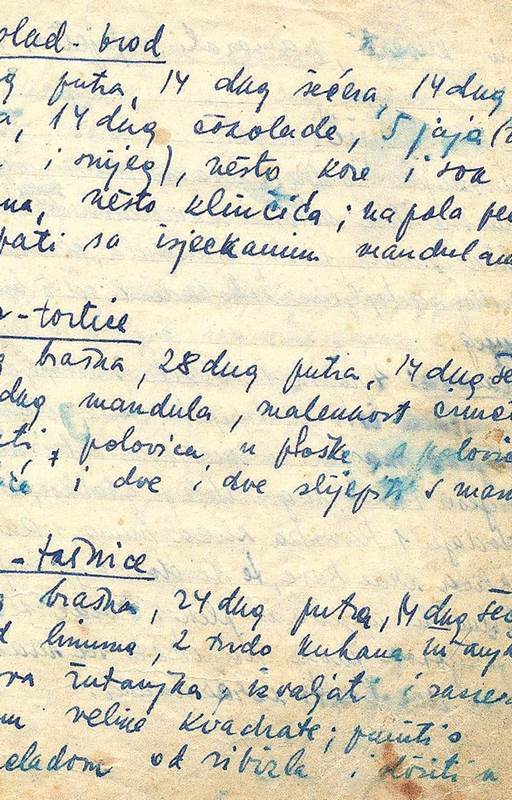 olad-brod
g putra, 14 dkg šećera, 14 dkg
a, 14 dkg čokolade, 5 jaja (
i snijeg), nešto kore i sok
na, nešto klinčića; napola pe
pati sa isjeckanim mandulam
-tortice
g brašna, 28 dkg putra, 14 dkg še
dkg mandula, malenkost cimet
ti, polovica u ploške, a polovic
i dve i dve slijepiti s mar
-tašnice
g brašna, 24 dkg putra, 14 dkg šeć
d limuna, 2 tvrdo kuhana žutanjk
va žutanjka izvaljati i
m velike kvadrate; puniti s
meladom od ribizla i složiti u